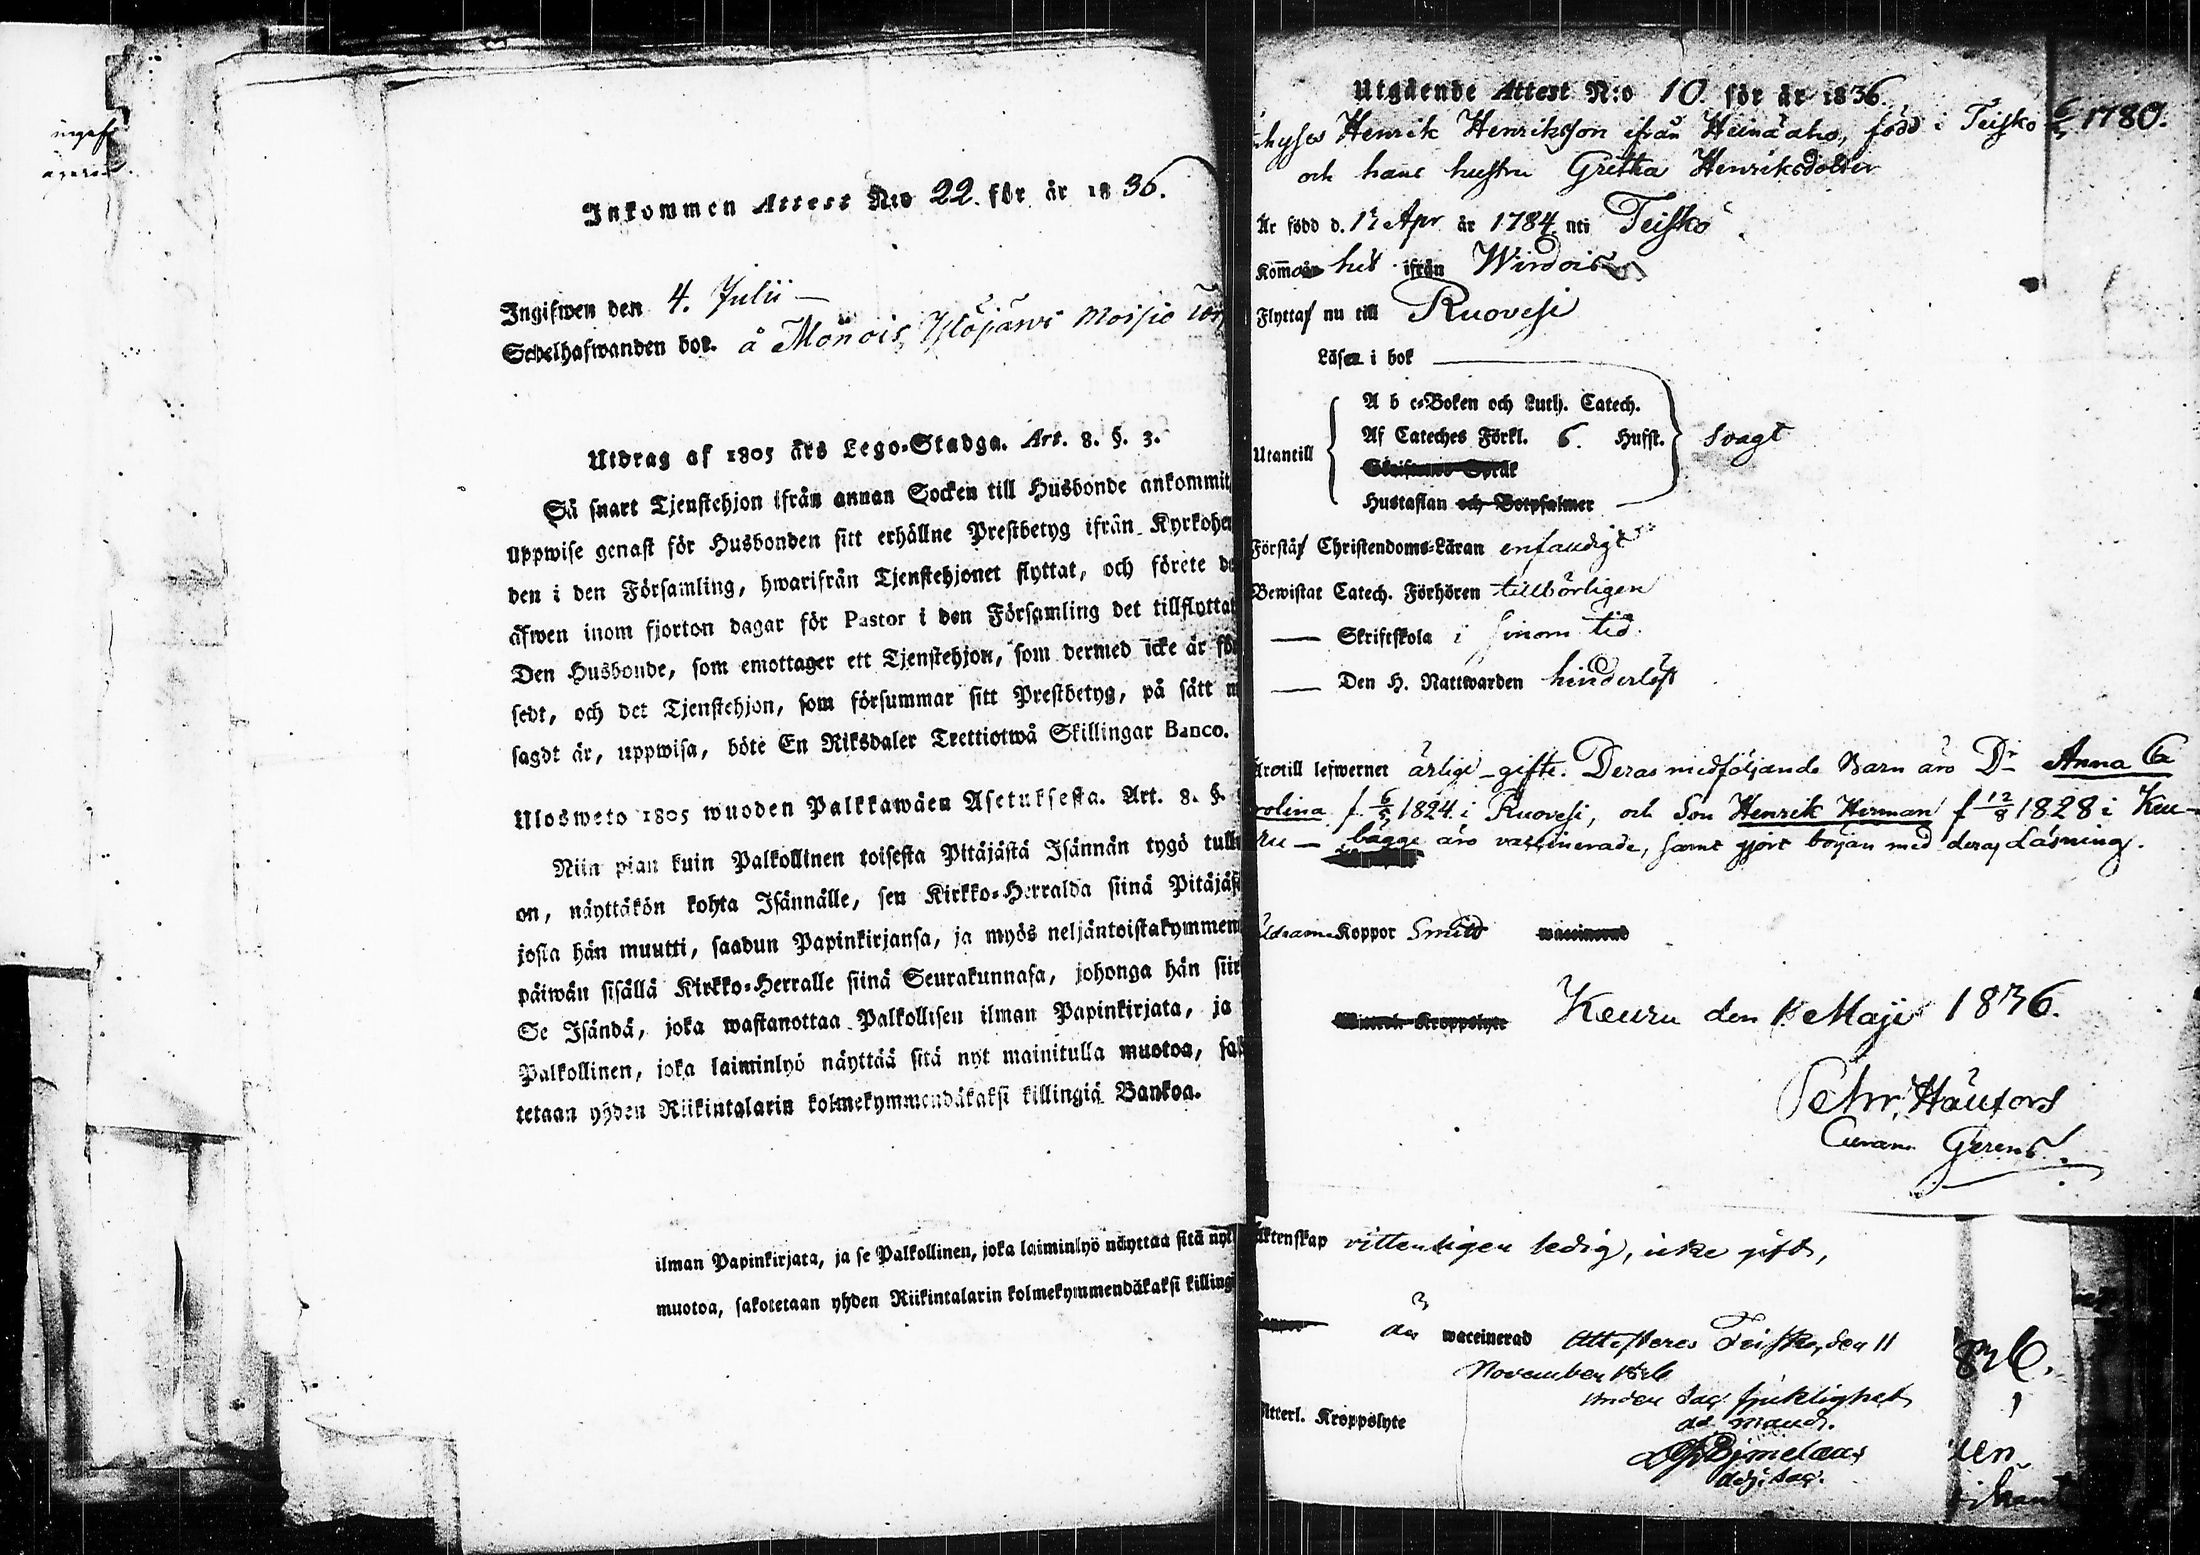 Inkommen Attest N:o 22. för år 1836.
Ingifwen den 4. Julii —
Sedelhafwanden bor. å Mönois, Ylöjärvi Moisio
Utdrag af 1805 års Lego-Stadga. Art. 8. §. 3.
Så snart Tjenstehjon ifrån annan Socken till Husbonde ankommit,
uppwise genast för Husbonden sitt erhållne Prestbetyg ifrån Kyrkoher
den i den Församling, hwarifrån Tjenstehjonet flyttat, och förete de
äfwen inom fjorton dagar för Pastor i den Församling det tillflyttat
Den Husbonde, som emottager ett Tjenstehjon, som dermed icke är för
sedt, och det Tjenstehjon, som försummar sitt Prestbetyg, på sätt n
sagdt är, uppwisa, böte En Riksdaler Trettiotwå Skillingar Banco.
Ulosweto 1805 wuoden Palkkawäen Asetuksesta. Art. 8. §.
Niin pian kuin Palkollinen toisesta Pitäjästä Isännän tygö tullu
on, näyttäkön kohta Isännälle, sen Kirkko-Herralda siinä Pitäjäs
josta hän muutti, saadun Papinkirjansa, ja myös neljäntoistakymmen
päiwän sisällä Kirkko-Herralle siinä Seurakunnasa, johonga hän siir
Se Isändä, joka wastanottaa Palkollisen ilman Papinkirjata, ja
Palkollinen, joka laiminlyö näyttää sitä nyt mainitulla muotoa, sak
tetaan yhden Riikintalarin kolmekymmendäkaksi killingiä Bankoa.
ilman Papinkirjata, ja se Palkollinen, joka laiminlyö näyttää sitä nyt
muotoa, sakotetaan yhden Riikintalarin kolmekymmendäkaksi killingi
Utgående Attest N:o 10. för år 1836.
Inhyses Henrik Henriksson ifrån Heinäaho, född i Teisko 1780.
och hans hustru Gretha Henriksdotter
Är född d. 17 Apr år 1784 uti Teisko
Komma hit ifrån Wirdois
Flytta nu till Ruovesi
Läsa i bok
A b c-Boken och Luth. Catech.
Af Cateches Förkl. 6. Hufst.
Utantill
svagt
Skriftenes Språk
Hustaflan och Botpsalmer
Förstå Christendoms-Läran enfaldigt
Bewistat Catech. Förhören tillbörligen
— Skriftskola i sinom tid.
— Den H. Nattwarden hinderlöst
Äro till lefwernet ärlige — gifte. Deras medföljande Barn äro Dr Anna Ca
rolina f. 6/5 1824 i Ruovesi, och Son Henrik Herman f 12/8 1828 i Keu-
ru — bägge äro vaccinerade, samt gjort början med deras Läsning.
Koppor Smitt waccinerad
Wittrol. Kroppslyte
Keuru den 18 Maji 1836.
Petr. Häufors
Curam Gerens.
Äktenskap vitterligen ledig, icke gift,
är waccinerad Attesteras Teisko, den 11
November 1836
under Sac. sjuklighet
ad mand.
Bjmelæus
adj. sac.
Witterl. Kroppslyte
836.